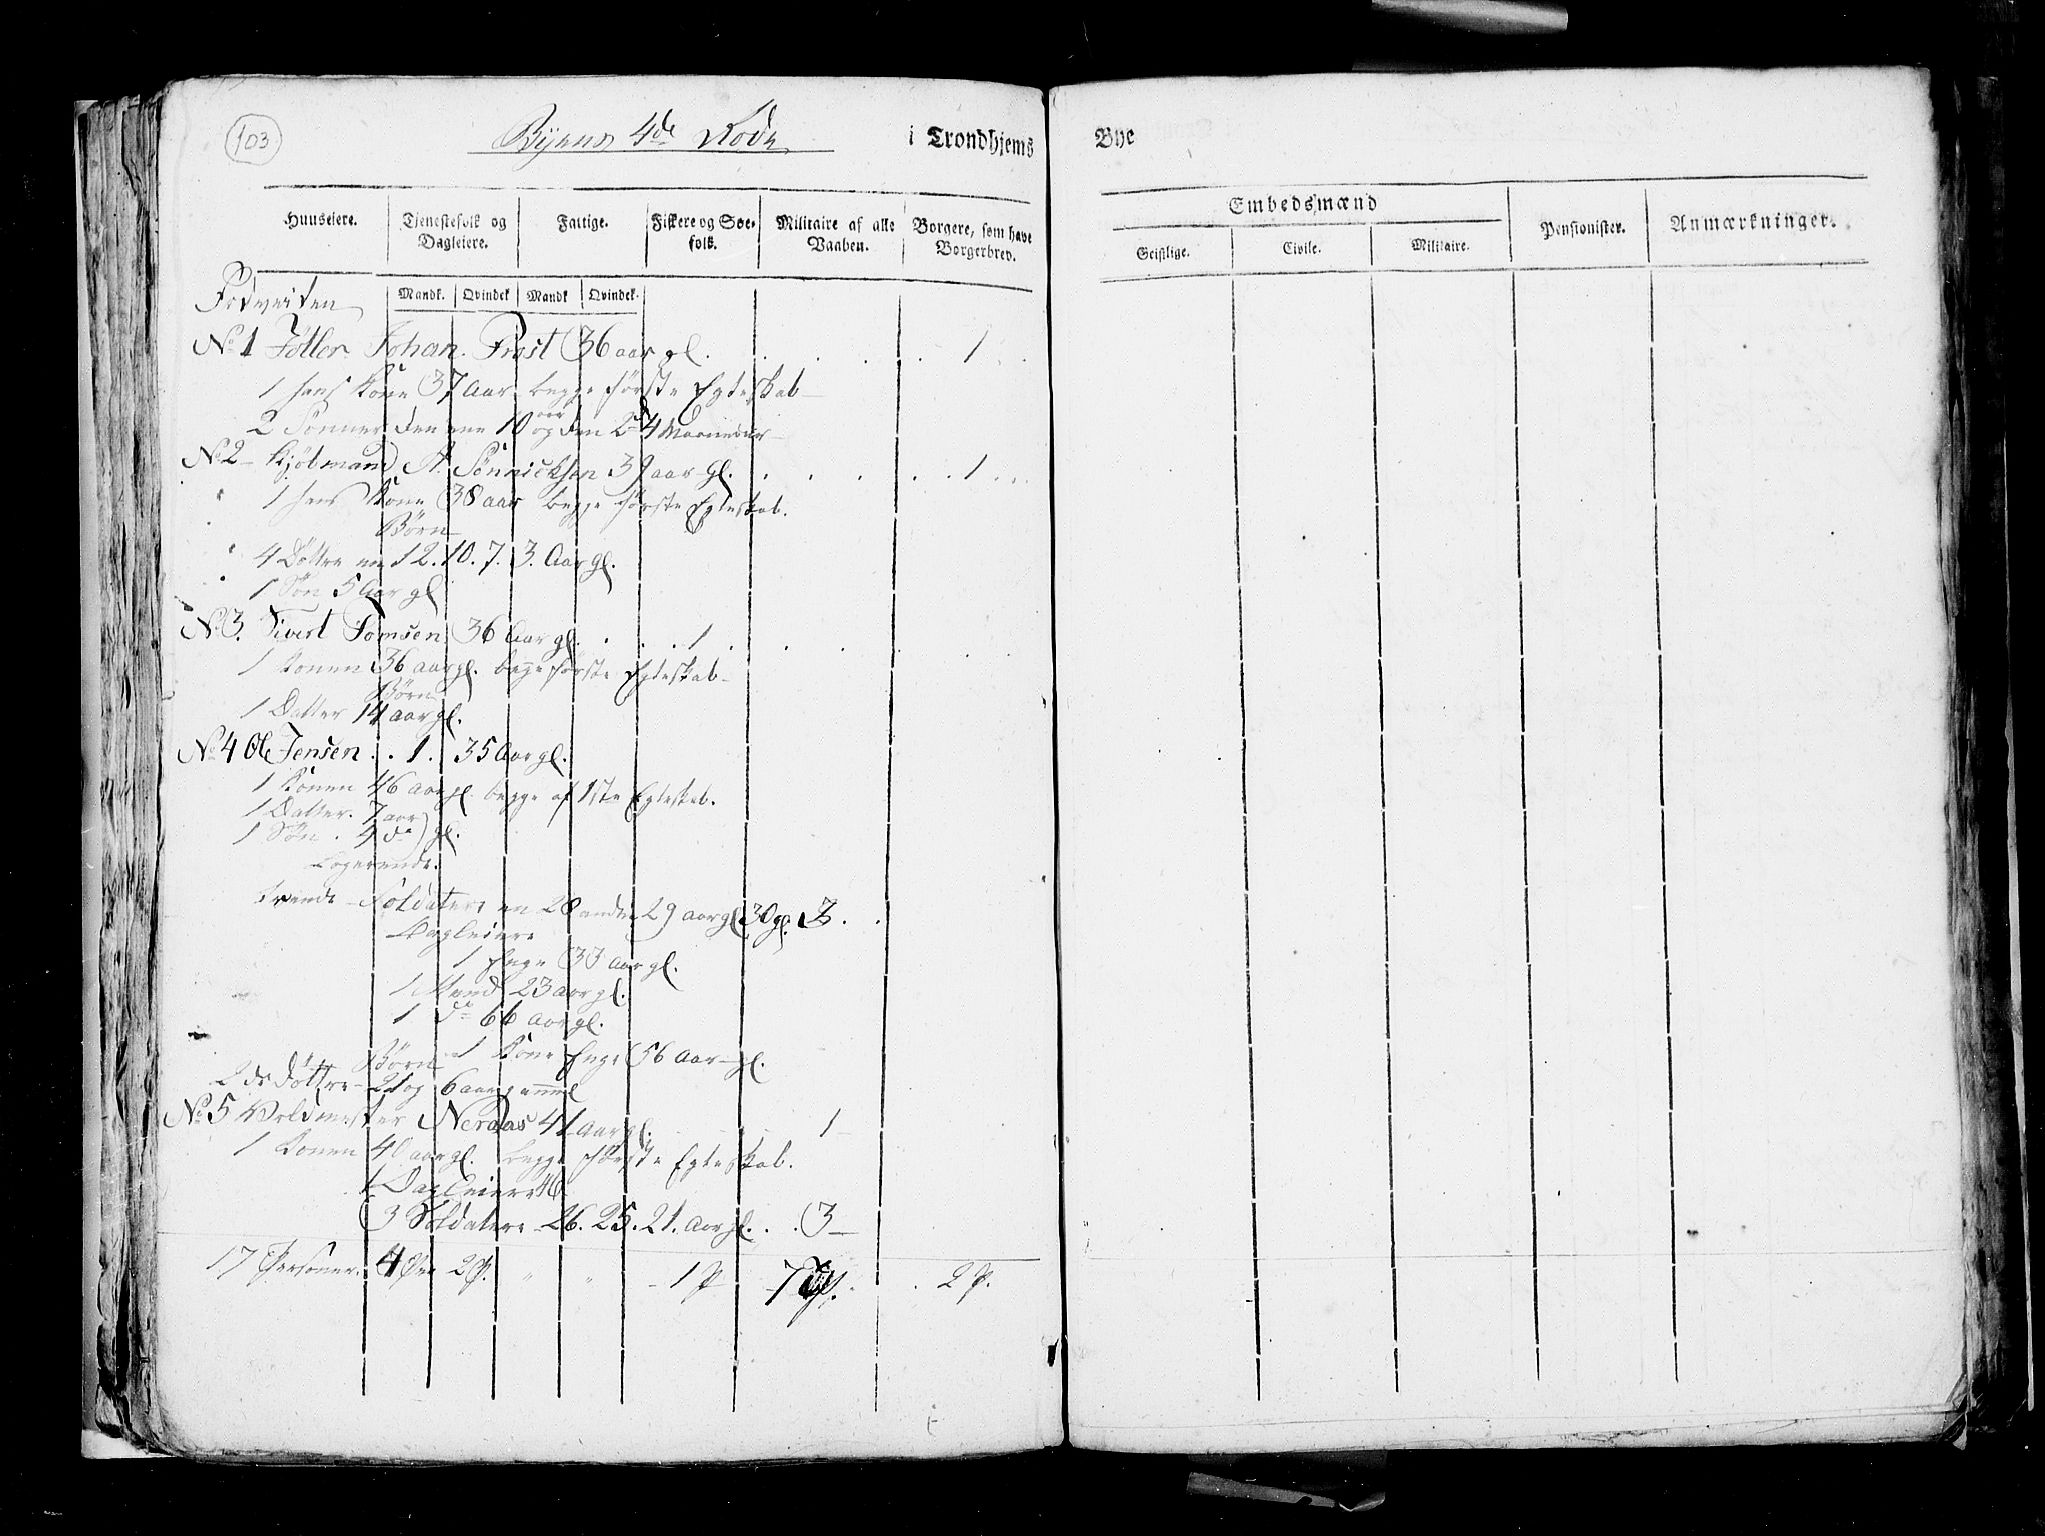 103
Byens 4de Rode i Trondhjems Bye
Huuseiere. Tjenestefolk og Dagleiere. Fattige. Fiskere og Søefolk. Militaire af alle Vaaben. Borgere, som have Borgerbrev.
Embedsmænd Pensionister. Anmærkninger.
Geistlige. Civile. Militaire.
Mandk. Qvindek Mandk Qvindek.
No 1 Johan Frost 36 aar gl. 1
1 hans Kone 37 Aar begge første Egteskab
2 Sønner den ene 10 aar og den 2d 4 Maaneder
No 2 Kjøbmand A. Sønnicksen 39 aar gl. 1
1 hans Kone 38 aar begge første Egteskab.
Børn
4 Døttre 12. 10. 7. 3. Aar gl.
1 Søn 5 Aar gl
No 3. Sivert Tomsen 36 Aar gl. 1
1 Konen 36 aar gl. begge første Egteskab
Børn
1 Datter 14 aar gl.
No 4 Ole Jensen . . 1 . 35 Aar gl.
1 Konen 46 aar gl. begge af 1ste Egteskab.
1 Datter. 7 aar
1 Søn . 4 do gl.
Logerende.
Trende Soldater en 28 anden 29 aar gl 30 gl. 3 .
Dagleiere
1 Enge 33 aar gl.
1 Mand 23 aar gl.
1 do 66 aar gl.
1 Kone Enge 56 Aar gl.
Børn
2de døttre 21 og 6 aar gammel
No 5 Voldmester Nerdas 41 Aar gl. 1
1 Konen 40 aar gl. begge første Egteskab.
1 Dagleier 46
3 Soldatere 26. 25. 21. Aar gl. . . 3
17 Personer. 4 2 P. " " 1 P 7 P. 2 P.